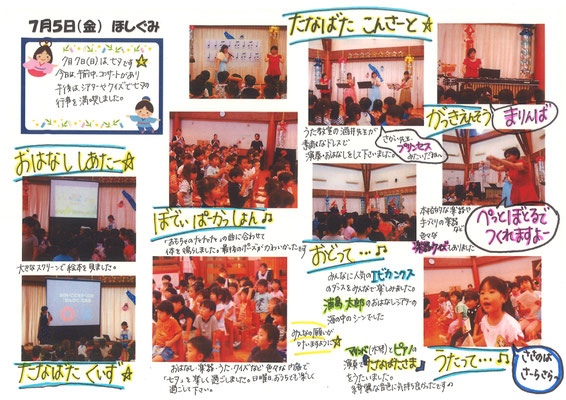 7月5日(金) ほしぐみ
7月7日(日)は、七夕です☆
今日は、午前中、コンサートがあり
午後は、シアターやクイズで七夕の
行事を満喫しました。
おはなし しあたー☆
大きなスクリーンで絵本を見ました。
たなばた くいず☆
ぼでぃ ぱーかっしょん♪
「おもちゃのチャチャチャ」の曲に合わせて
体を鳴らしました。最後のポーズがかわいかったです
みんなの願いが
叶いますように☆
おはなし・楽器・うた・クイズなど色々な内容で
「七夕」を楽しく過ごしました。日曜日、おうちでも楽しく
過ごして下さい。
たなばた こんさーと☆
うた教室の酒井先生が
素敵なドレスで
演奏・おはなしをして下さいました。
プリンセス
みたいだね〜
おどって…♪
みんなに人気のエビカニクス
のダンスをみんなで楽しみました。
浦島太郎のおはなしシアターの
海の中のシーンでした
マリンバ(木琴)とピアノの
演奏で「たなばたさま」
をうたいました。
がっきえんそう
まりんば
本格的な楽器や
手づくりの楽器
など
色々な
楽器クイズもしました
ぺっとぼとるで
つくれますよー
うたって…♪
ささのは
さーらさらー